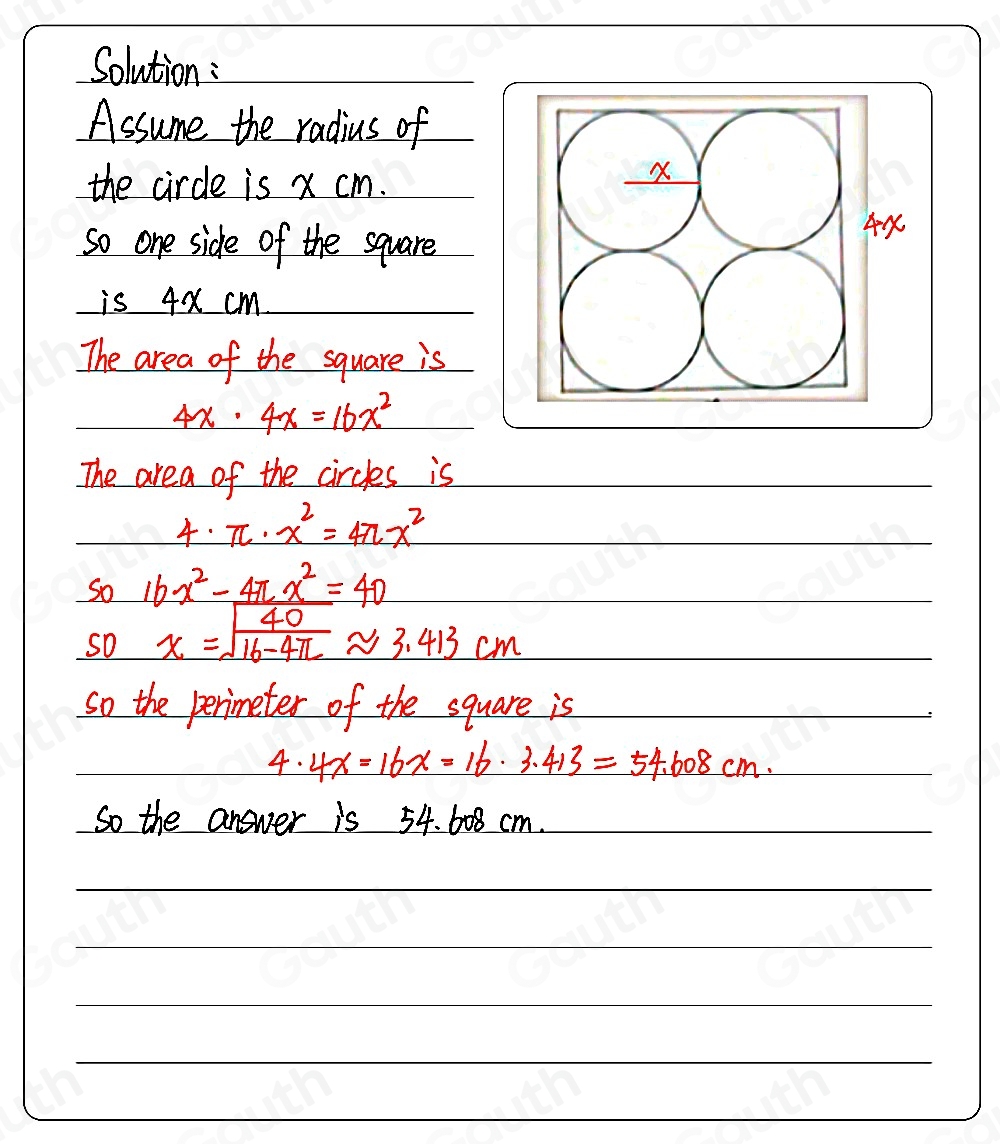 Solution:
Assume the radius of
the circle is x cm.
so one side of the square
is 4x cm.
The area of the square is
4x · 4x = 16x²
The area of the circles is
4 · π · x² = 4πx²
so 16x² - 4πx² = 40
so x = √(40/(16-4π)) ≈ 3.413 cm
so the perimeter of the square is
4 · 4x = 16x = 16 · 3.413 = 54.608 cm.
so the answer is 54.608 cm.
x
4x
Gauth